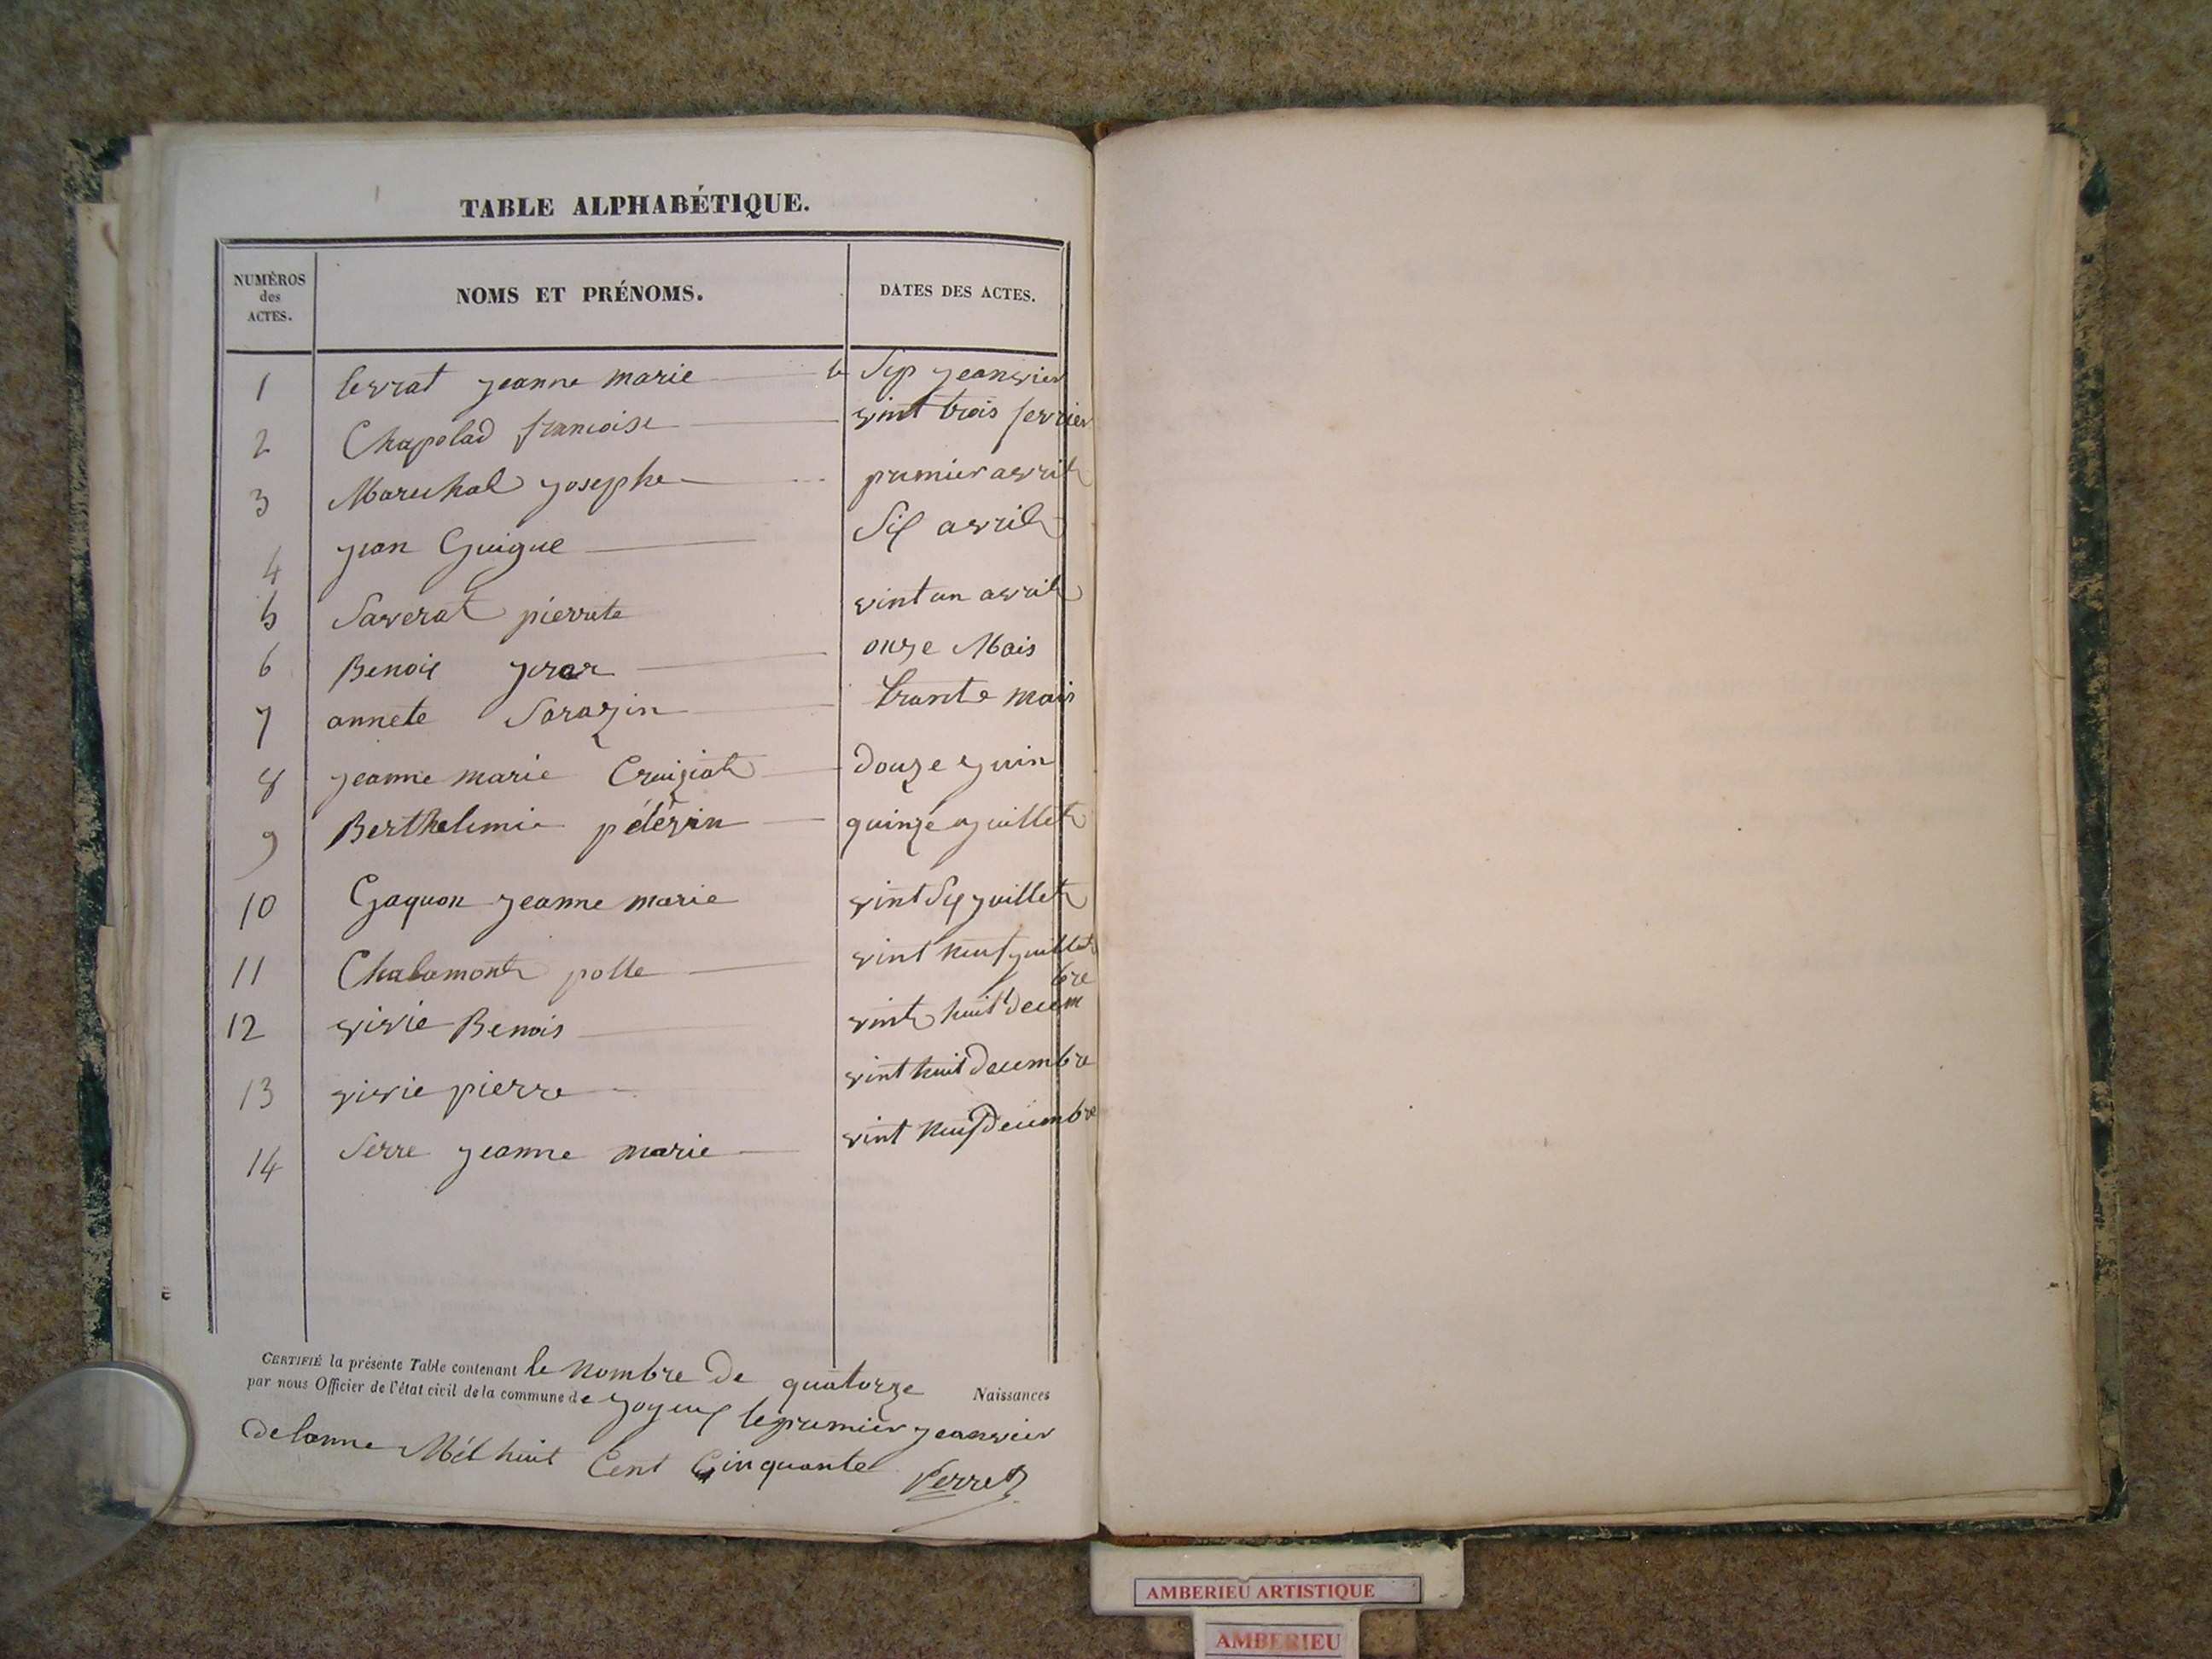 TABLE ALPHABÉTIQUE.
NUMÉROS des ACTES. NOMS ET PRÉNOMS. DATES DES ACTES.
1 levrat jeanne marie le Sip jeanvier
2 Chapolad francoise vint trois fevrier
3 Marechal josephe premier avril
4 jean Guigue Six avril
5 Saverat pierrete vint un avril
6 Benois onze Mais
7 annete Sarazin trante mais
8 jeanne marie Cruiziat douze juin
9 Berthelemie pélérin quinze juillet
10 Gaquon jeanne marie vint Six juillet
11 Chalamont polle vint neuf juillet
12 vivie Benois vint huit decembre
13 vivie pierre vint huit decembre
14 Serre jeanne marie vint neuf decembre
CERTIFIÉ la présente Table contenant le nombre de quatorze Naissances
par nous Officier de l'état civil de la commune de joyeux le premier jeanvier
de lanne Mil huit Cent Cinquante Perret
AMBERIEU ARTISTIQUE
AMBERIEU